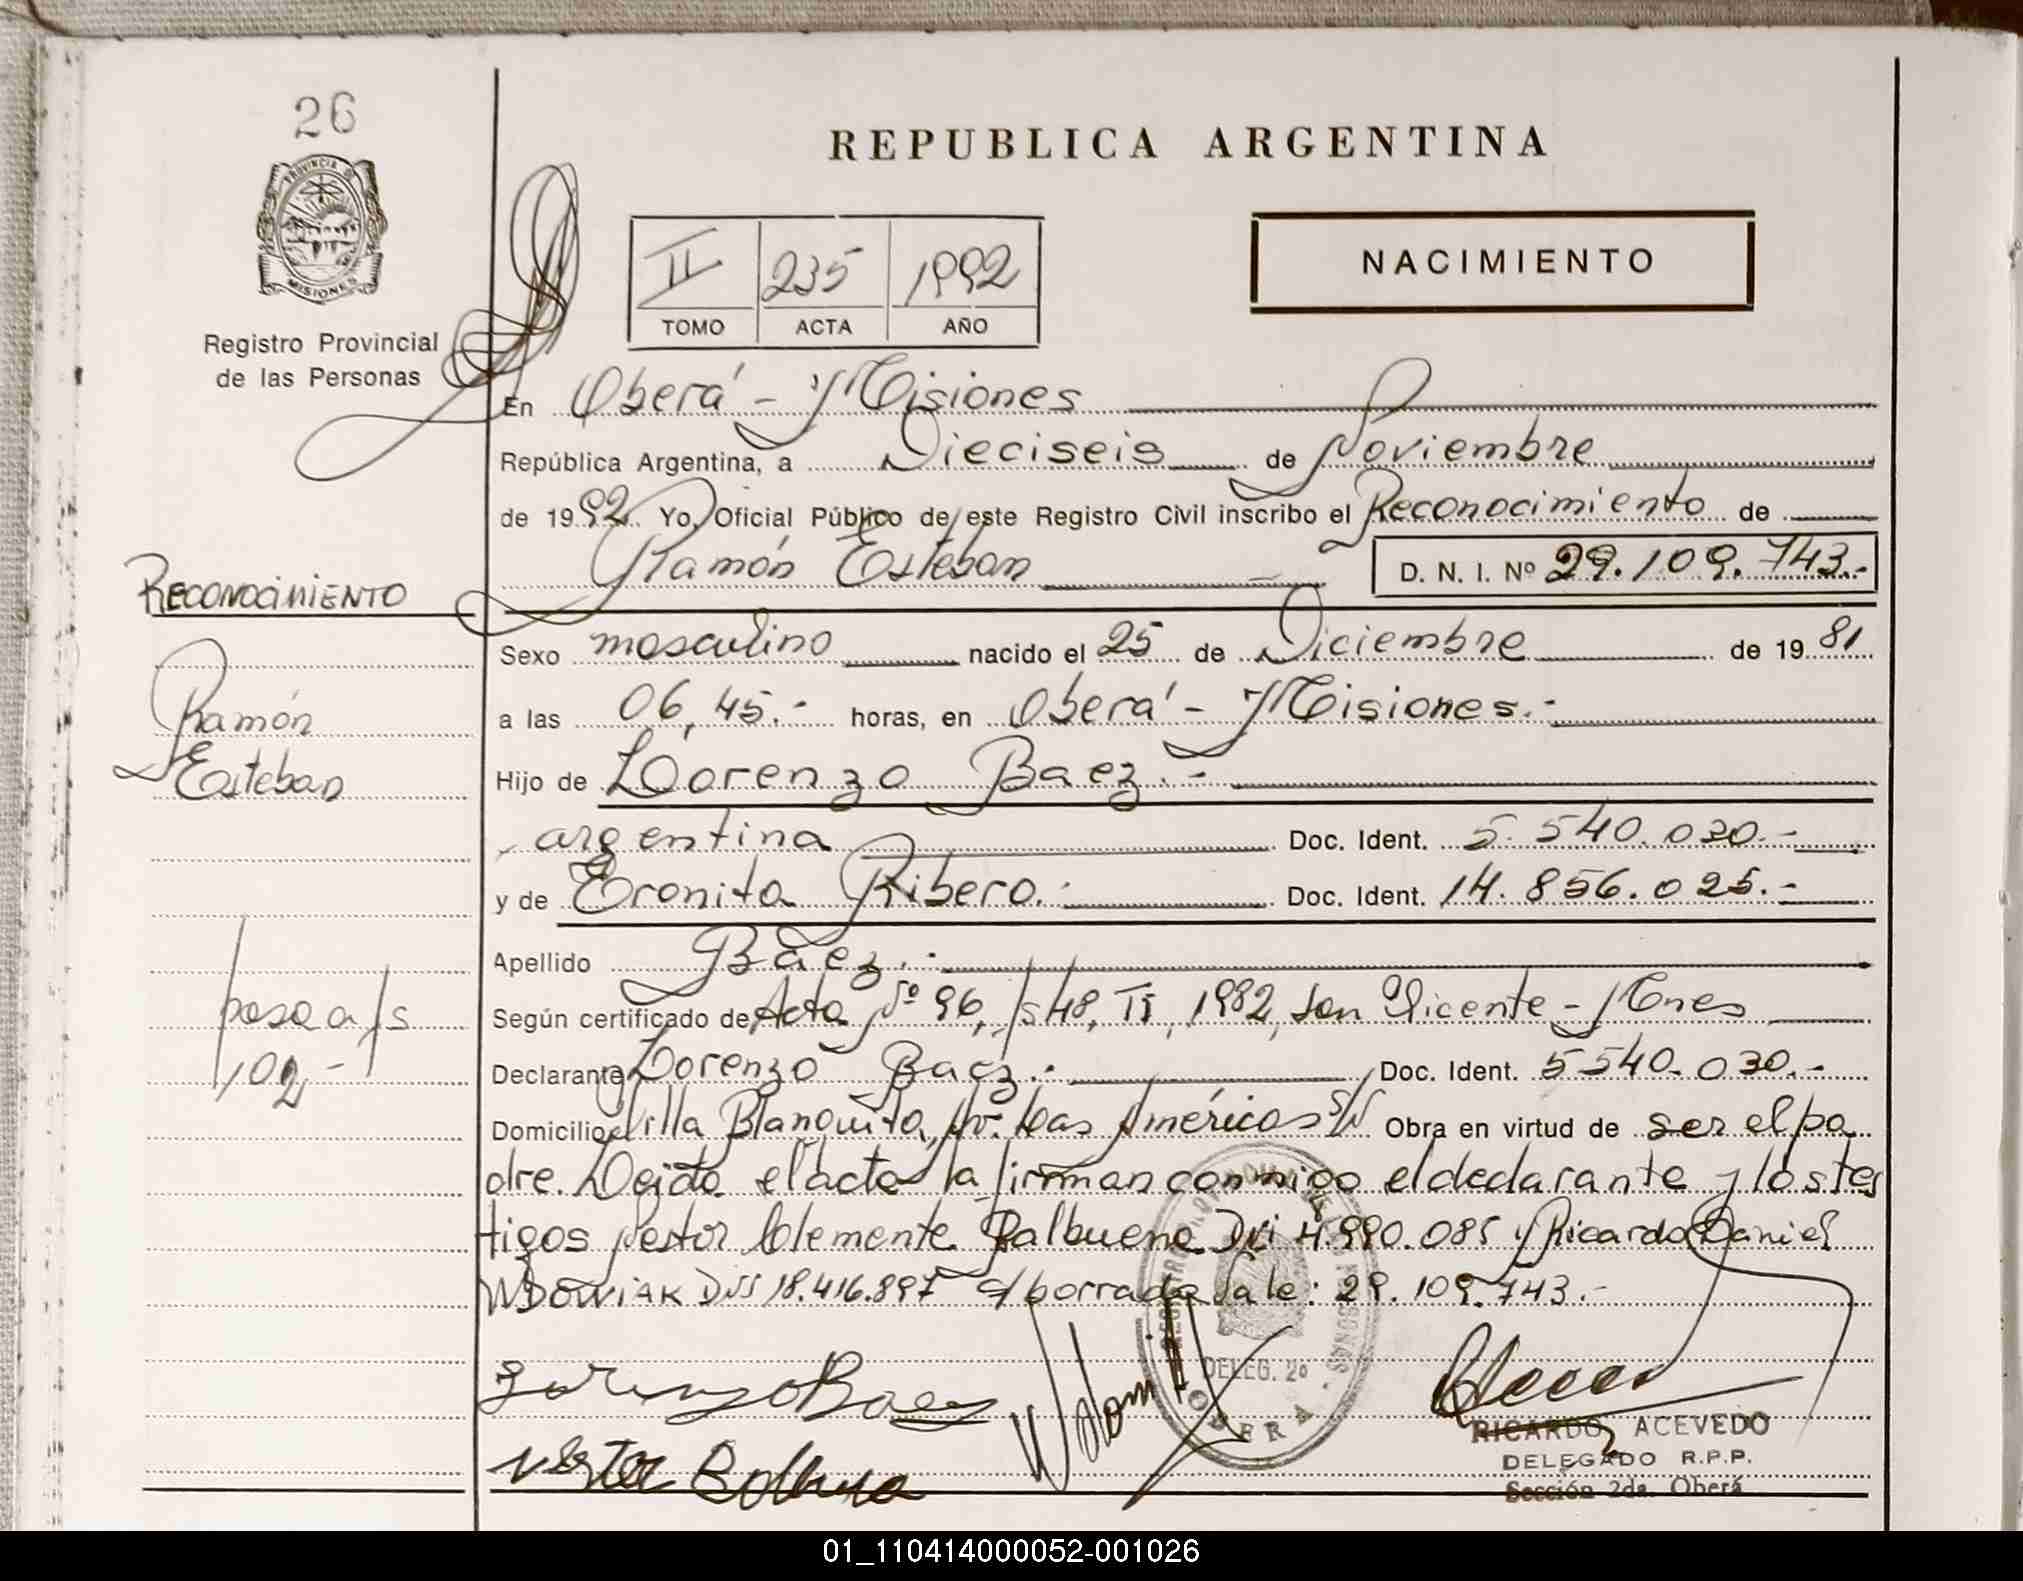 26
PROVINCIA DE
MISIONES
Registro Provincial
de las Personas
REPUBLICA ARGENTINA
II 235 1992
TOMO ACTA AÑO
NACIMIENTO
En Oberá - Misiones
República Argentina, a Dieciseis de Noviembre
de 1992. Yo, Oficial Público de este Registro Civil inscribo el Reconocimiento de
Ramón Esteban D. N. I. Nº 29.109.743.-
RECONOCIMIENTO
Ramón
Esteban
pasa a fs
102-
Sexo masculino nacido el 25 de Diciembre de 1981
a las 06,45.- horas, en Oberá - Misiones.-
Hijo de Lorenzo Baez.-
argentina Doc. Ident. 5.540.030.-
y de Eronita Ribero.- Doc. Ident. 14.856.025.-
Apellido Baez.-
Según certificado de Acta Nº 96, fs 48, TI, 1982, San Vicente - Mnes
Declarante Lorenzo Baez.- Doc. Ident. 5.540.030.-
Domicilio Villa Blanquita, Av. Las Américas S/N Obra en virtud de ser el pa
dre. Leida el acta la firman conmigo el declarante y los tes
tigos Nestor Clemente Balbuena Dni 4.990.085 y Ricardo Daniel
WDOWIAK DNI 18.416.897 s/borrado Vale: 29.109.743.-
Lorenzo Baez
DELEG. 2º
OBERA
Nestor Balbuena
RICARDO ACEVEDO
DELEGADO R.P.P.
Sección 2da. Oberá
01_110414000052-001026